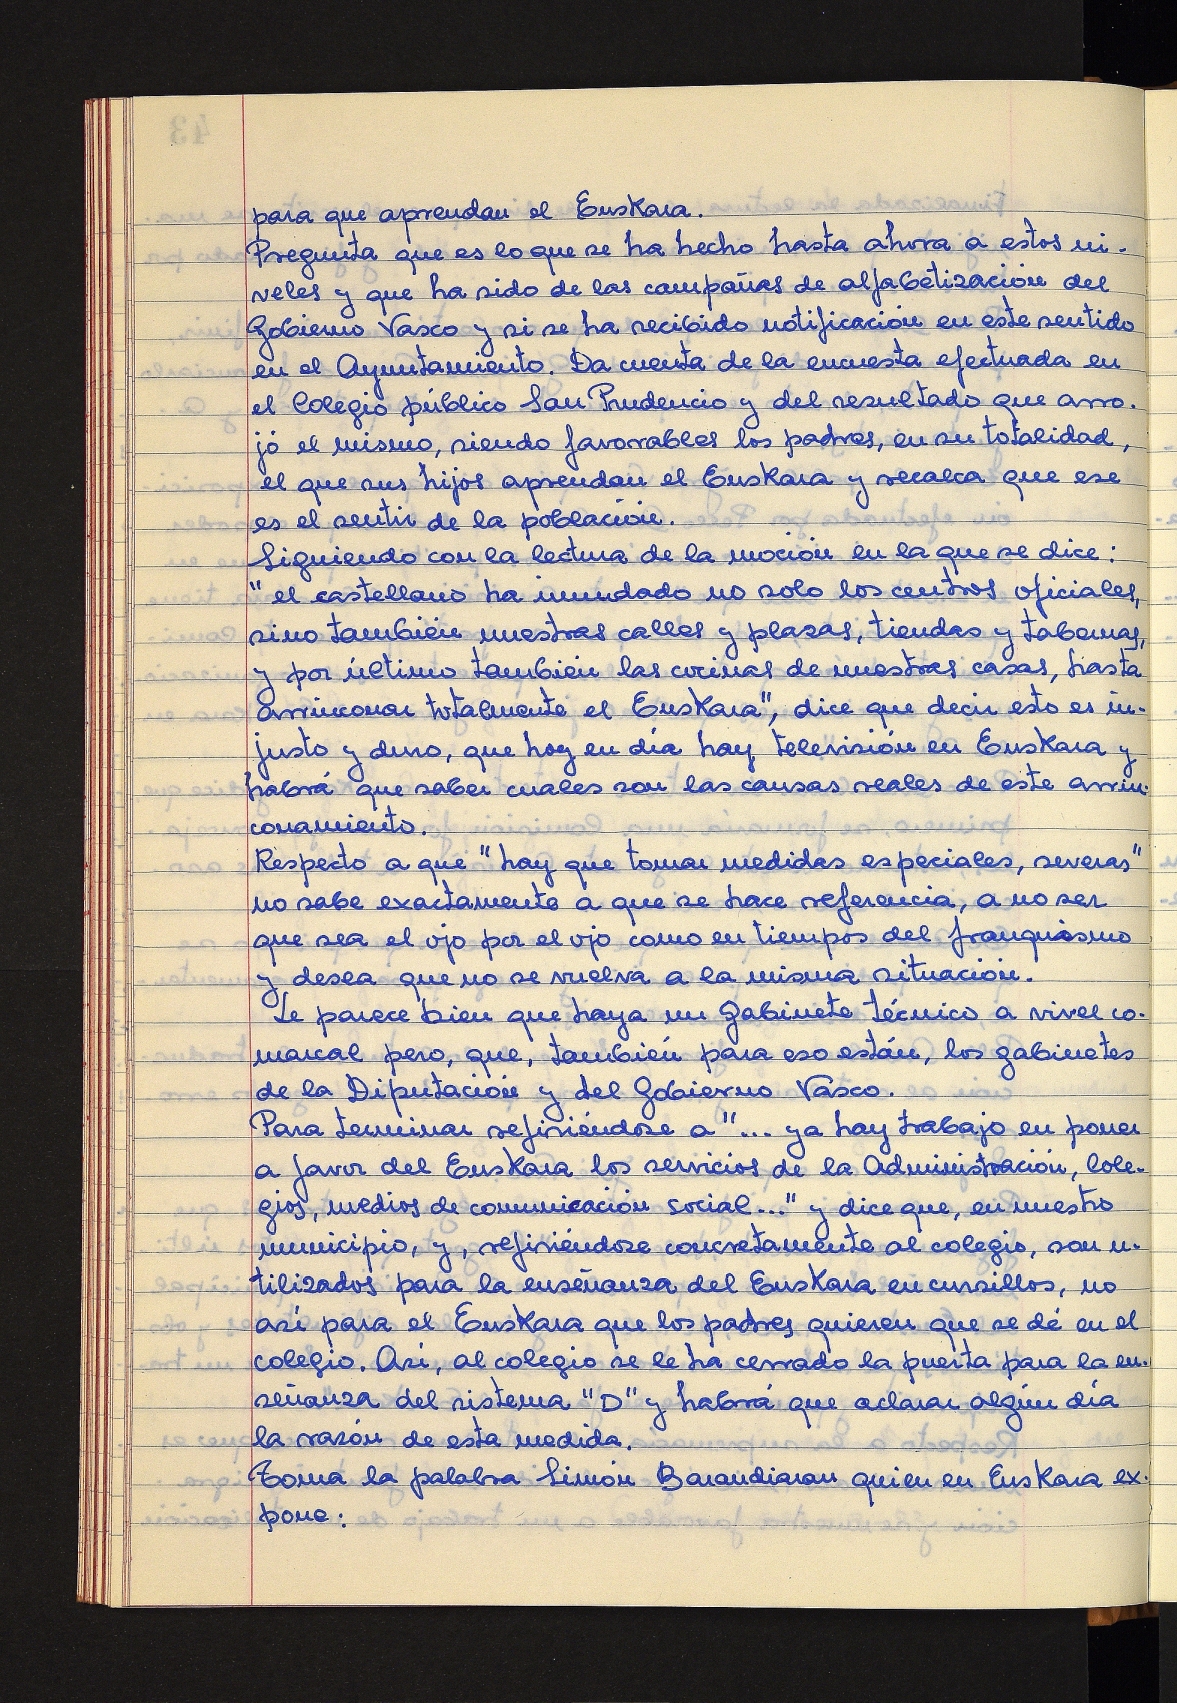 para que aprendan el Euskara.
Pregunta que es lo que se ha hecho hasta ahora a estos ni-
veles y que ha sido de las campañas de alfabetización del
Gobierno Vasco y si se ha recibido notificación en este sentido
en el Ayuntamiento. Da cuenta de la encuesta efectuada en
el Colegio público San Prudencio y del resultado que arro-
jó el mismo, siendo favorables los padres, en su totalidad,
el que sus hijos aprendan el Euskara y recalca que ese
es el sentir de la población.
Siguiendo con la lectura de la moción en la que se dice:
"el castellano ha inundado no solo los centros oficiales,
sino también nuestras calles y plazas, tiendas y tabernas,
y por último también las cocinas de nuestras casas, hasta
arrinconar totalmente el Euskara", dice que decir esto es in-
justo y duro, que hoy en día hay televisión en Euskara y
habrá que saber cuales son las causas reales de este arrin-
conamiento.
Respecto a que "hay que tomar medidas especiales, severas"
no sabe exactamente a que se hace referencia, a no ser
que sea el ojo por el ojo como en tiempos del franquismo
y desea que no se vuelva a la misma situación.
Le parece bien que haya un Gabinete técnico, a nivel co-
marcal pero, que, también para eso están, los gabinetes
de la Diputación y del Gobierno Vasco.
Para terminar refiriéndose a "... ya hay trabajo en poner
a favor del Euskara los servicios de la Administración, cole-
gios, medios de comunicación social..." y dice que, en nuestro
municipio, y, refiriéndose concretamente al colegio, son u-
tilizados para la enseñanza del Euskara en cursillos, no
así para el Euskara que los padres quieren que se dé en el
colegio. Así, al colegio se le ha cerrado la puerta para la en-
señanza del sistema "D" y habrá que aclarar algún día
la razón de esta medida.
Toma la palabra Simón Barandiaran quien en Euskara ex-
pone: